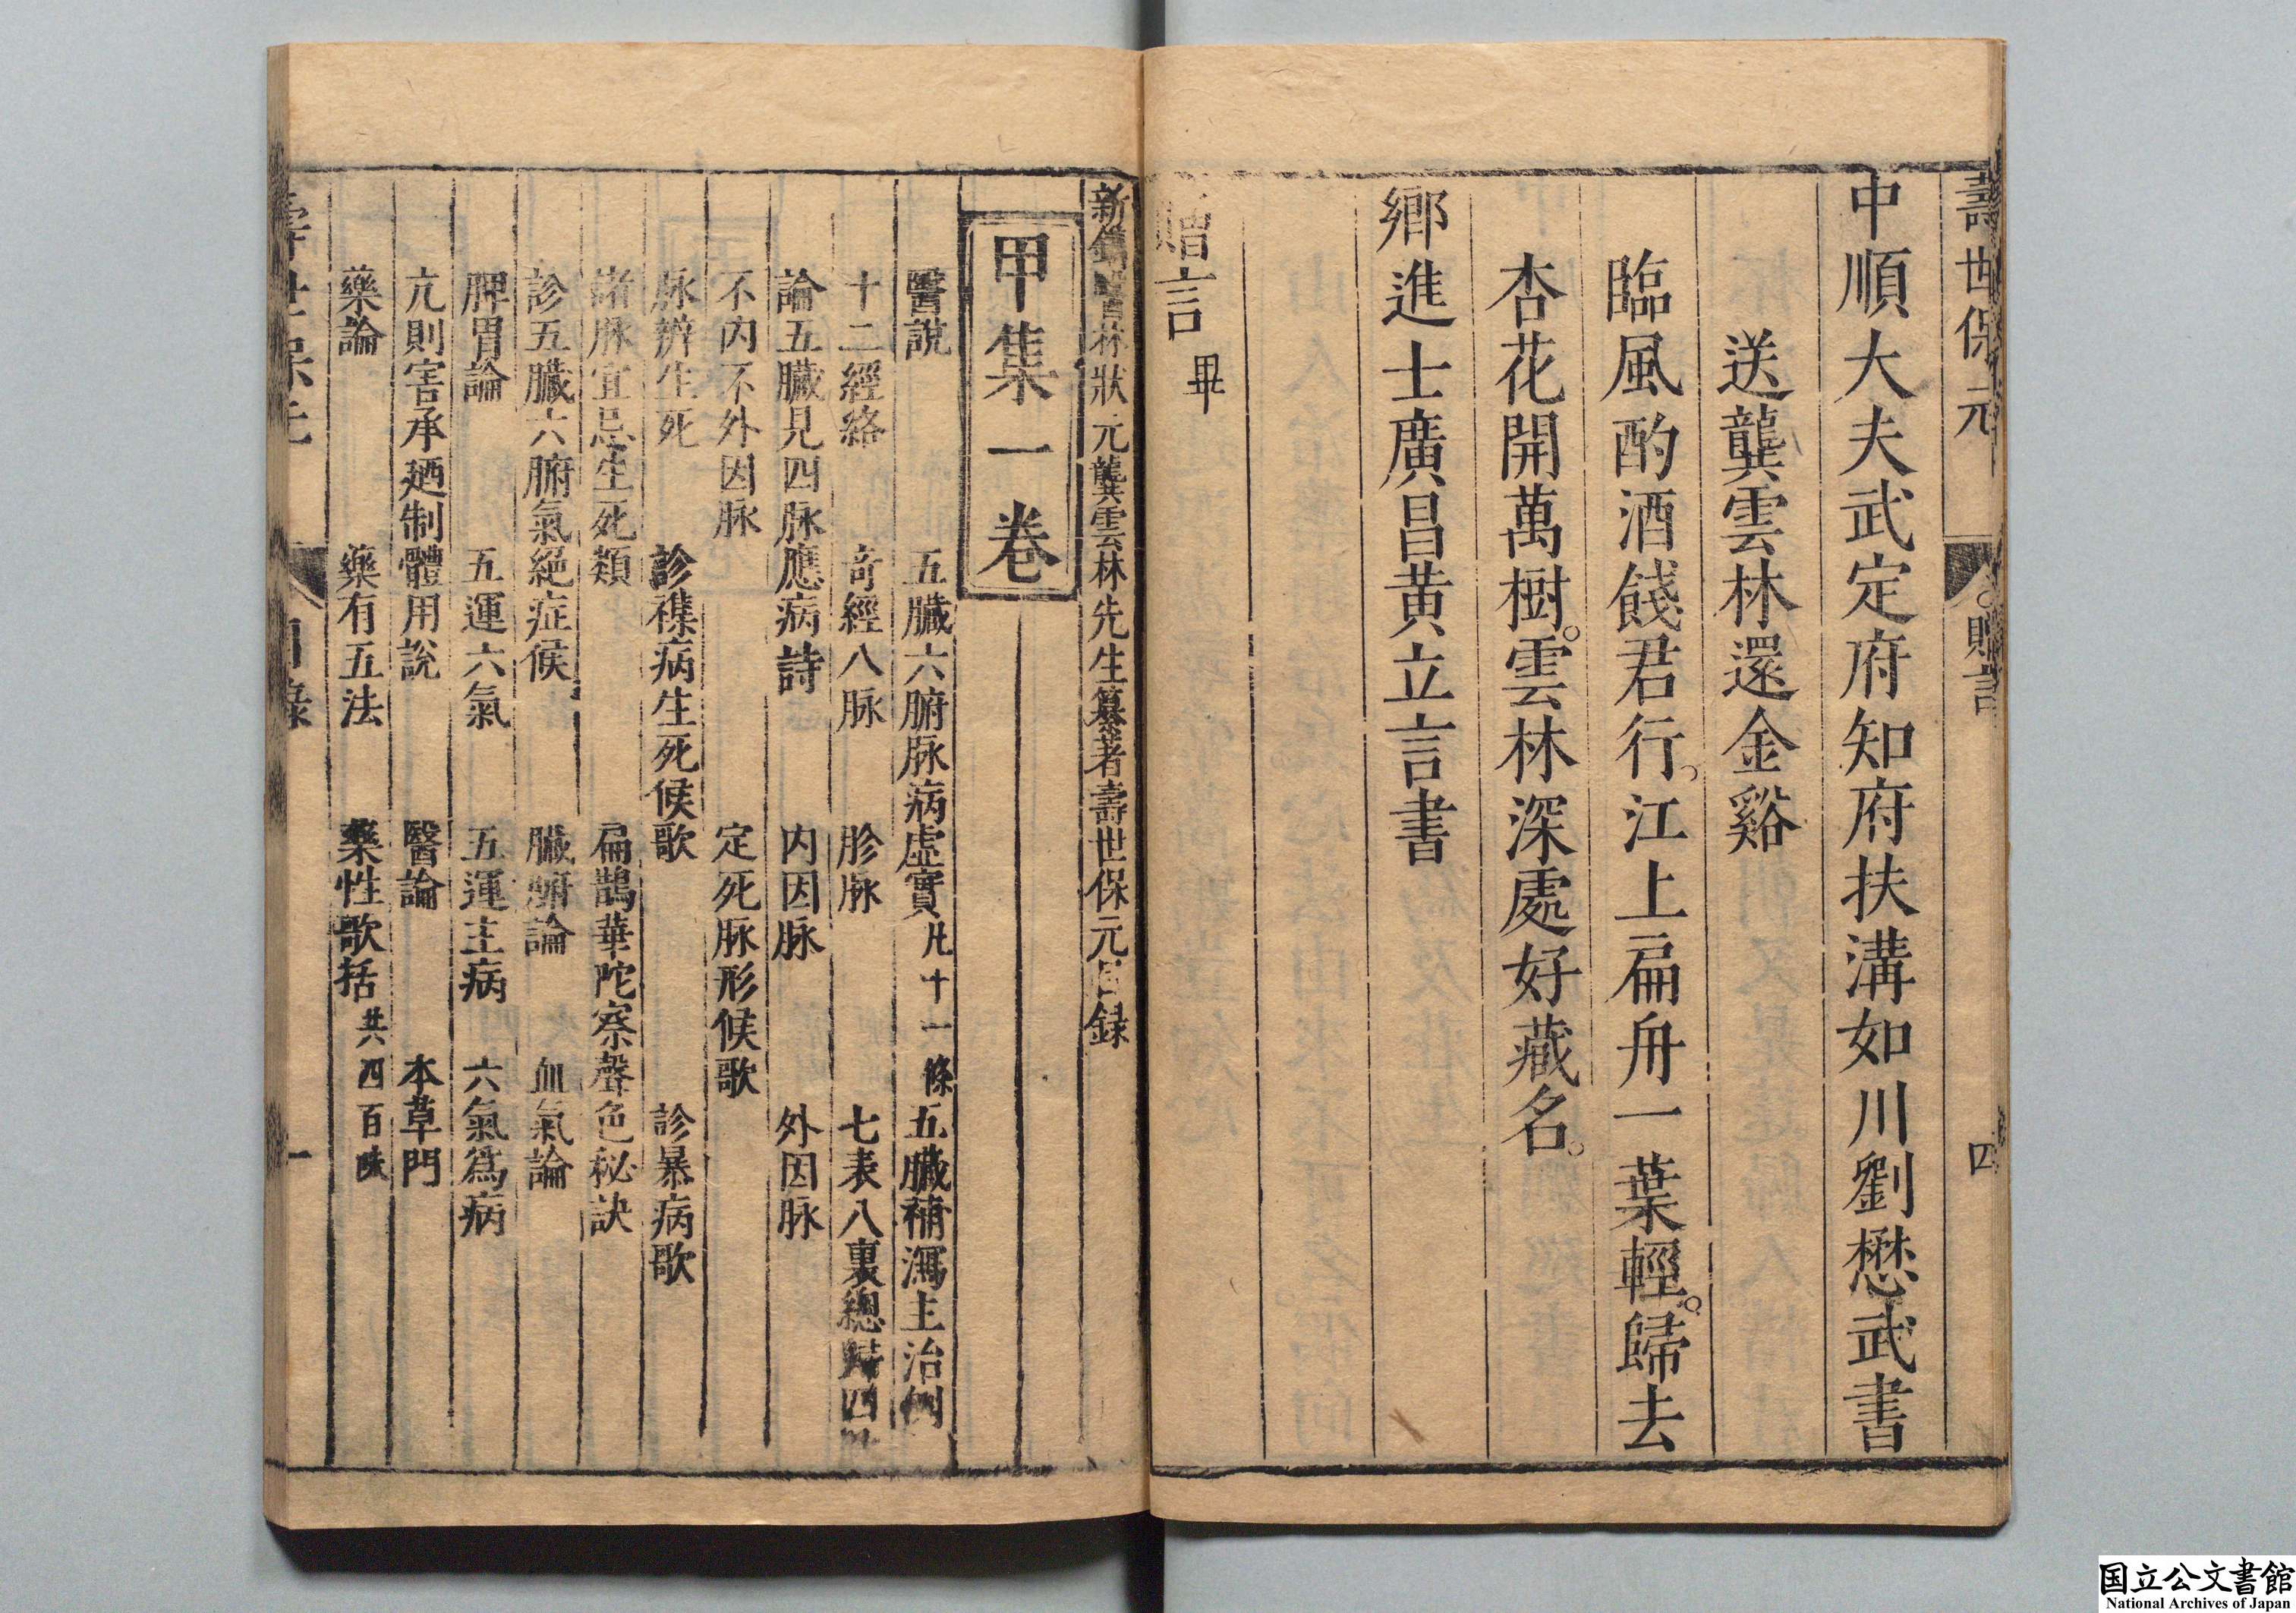 壽世保元
贈言
四
中順大夫武定府知府扶溝如川劉懋武書
送龔雲林還金谿
臨風酌酒餞君行。江上扁舟一葉輕。歸去
杏花開萬樹。雲林深處好藏名。
鄉進士廣昌黄立言書
贈言畢
新鐫雲林狀元龔雲林先生纂著壽世保元目録
甲集一卷
醫説 五臟六腑脉病虛實凡十一條 五臟補瀉主治例
十二經絡 奇經八脉 胗脉 七表八裏總歸四
論五臟見四脉應病詩 内因脉 外因脉
不内不外因脉 定死脉形候歌
脉辨生死 診襍病生死候歌 診暴病歌
諸脉宜忌生死類 扁鵲華陀察聲色秘訣
診五臟六腑氣絶症候 臟腑論 血氣論
脾胃論 五運六氣 五運主病 六氣爲病
亢則害承廼制體用説 醫論 本草門
藥論 藥有五法 藥性歌括共四百味
壽世保元
目錄
一
国立公文書館
National Archives of Japan